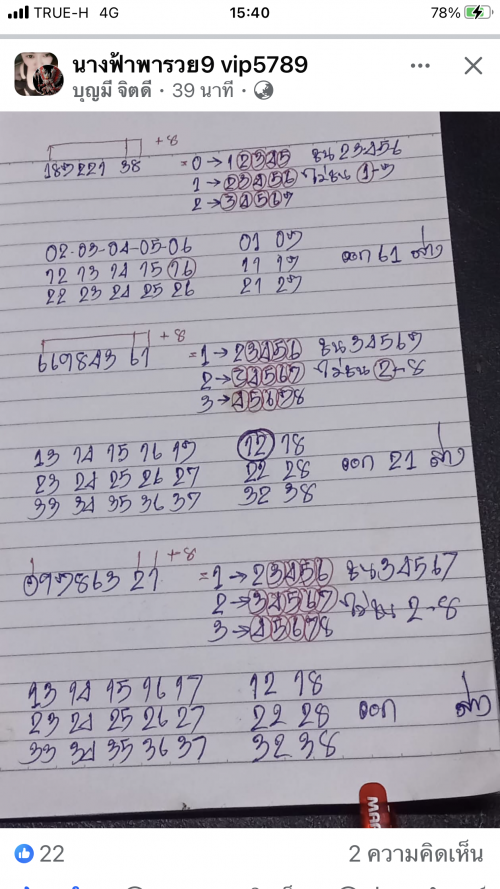 TRUE-H 4G 15:40 78%
นางฟ้าพารวย9 vip5789
บุญมี จิตดี · 39 นาที ·
+8
185221 38 =0→12345 ชน23456
1→23456 ไม่ชน 1-7
2→34567
02-03-04-05-06 01 07
12 13 14 15 16 11 17 ออก 61 ล่าง
22 23 24 25 26 21 27
+8
669843 61 =1→23456 ชน34567
2→34567 ไม่ชน 2-8
3→45678
13 14 15 16 17 12 18
23 24 25 26 27 22 28 ออก 21 ล่าง
33 34 35 36 37 32 38
+8
097863 21 =1→23456 ชน34567
2→34567 ไม่ชน 2-8
3→45678
13 14 15 16 17 12 18
23 24 25 26 27 22 28 ออก ล่าง
33 34 35 36 37 32 38
22 2 ความคิดเห็น